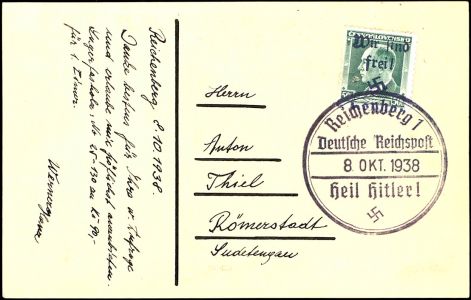 Reichenberg 8.10.1938.
Danke bestens für Ihre w. Anfrage
und erlaube mir höflichst anzubieten
für 1. Zimer.
Herrn
Anton
Thiel
Römerstadt
Sudetengau
ČESKOSLOVENSKO
Wir sind
frei!
Reichenberg 1
Deutsche Reichspost
8. OKT. 1938
Heil Hitler!